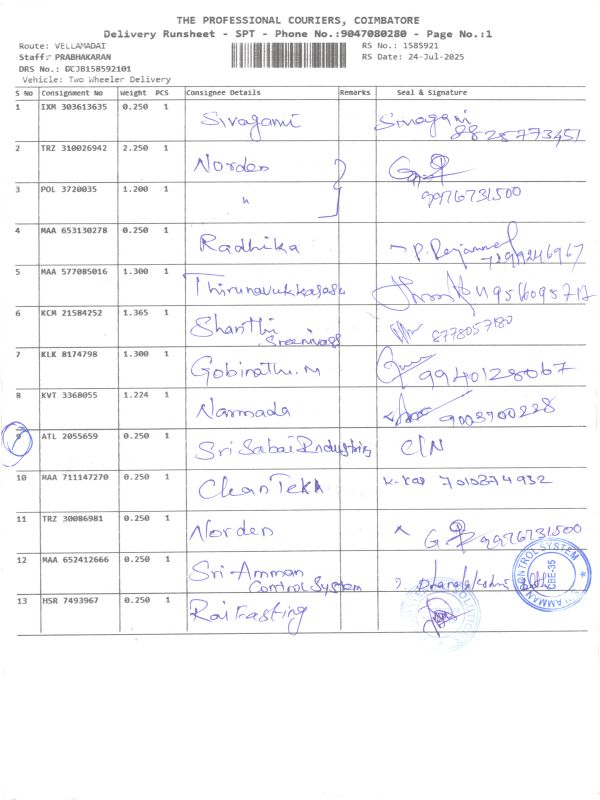 THE PROFESSIONAL COURIERS, COIMBATORE
Delivery Runsheet - SPT - Phone No.:9047080280 - Page No.:1
Route: VELLAMADAI RS No.: 1585921
Staff: PRABHAKARAN RS Date: 24-Jul-2025
DRS No.: DCJB158592101
Vehicle: Two Wheeler Delivery
S No Consignment No Weight PCS Consignee Details Remarks Seal & Signature
1 IXM 303613635 0.250 1 Sivagami Sivagami
8825773451
2 TRZ 310026942 2.250 1 Norden
3 POL 3720035 1.200 1 " 9976731500
4 MAA 653130278 0.250 1 Radhika P. Rajammal
7299246967
5 MAA 577085016 1.300 1 Thirunavukkarasu 9566095717
6 KCM 21584252 1.365 1 Shanthi
Sreenivas 8778057180
7 KLK 8174798 1.300 1 Gobinathi.M 9940128067
8 KVT 3368055 1.224 1 Narmada 9003700228
9 ATL 2055659 0.250 1 Sri Sabai Industries C/N
10 MAA 711147270 0.250 1 Clean Tekh 7010874932
11 TRZ 30086981 0.250 1 Norden 9976731500
12 MAA 652412666 0.250 1 Sri-Amman
Control System
CONTROL SYSTEM
CBE-35
13 HSR 7493967 0.250 1